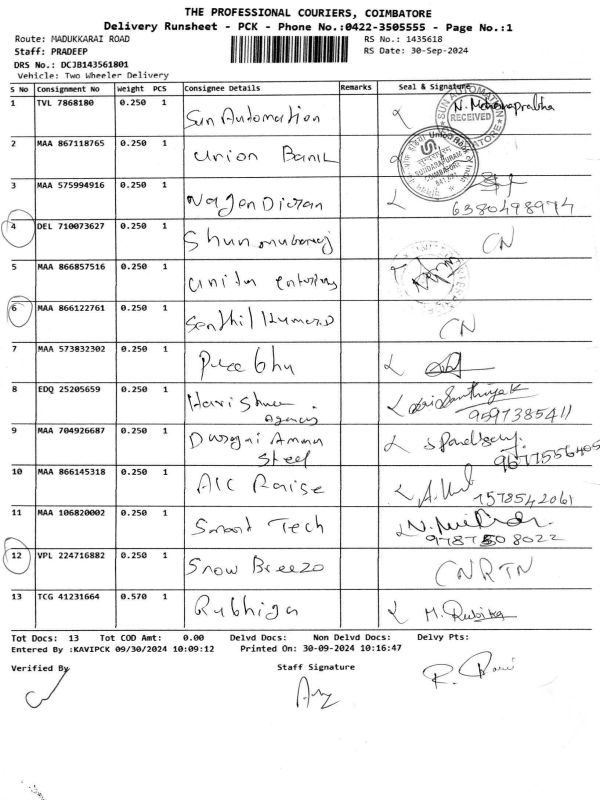 THE PROFESSIONAL COURIERS, COIMBATORE
Delivery Runsheet - PCK - Phone No.:0422-3505555 - Page No.:1
Route: MADUKKARAI ROAD RS No.: 1435618
Staff: PRADEEP RS Date: 30-Sep-2024
DRS No.: DCJB143561801
Vehicle: Two Wheeler Delivery
S No Consignment No Weight PCS Consignee Details Remarks Seal & Signature
1 TVL 7868180 0.250 1 Sun Automation
SUN AUTOMATION RECEIVED
2 MAA 867118765 0.250 1 Union Bank
Union Bank of India SUNDARAPURAM COIMBATORE
3 MAA 575994916 0.250 1 6380498974
4 DEL 710073627 0.250 1 CN
5 MAA 866857516 0.250 1
6 MAA 866122761 0.250 1 CN
7 MAA 573832302 0.250 1
8 EDQ 25205659 0.250 1 9597385411
9 MAA 704926687 0.250 1 Durgai Amman
Steel 9677556405
10 MAA 866145318 0.250 1 AIC Raise 7578542061
11 MAA 106820002 0.250 1 Smart Tech
12 VPL 224716882 0.250 1 Snow Breezo CNRTN
13 TCG 41231664 0.570 1 M. Rubika
Tot Docs: 13 Tot COD Amt: 0.00 Delvd Docs: Non Delvd Docs: Delvy Pts:
Entered By :KAVIPCK 09/30/2024 10:09:12 Printed On: 30-09-2024 10:16:47
Verified By Staff Signature